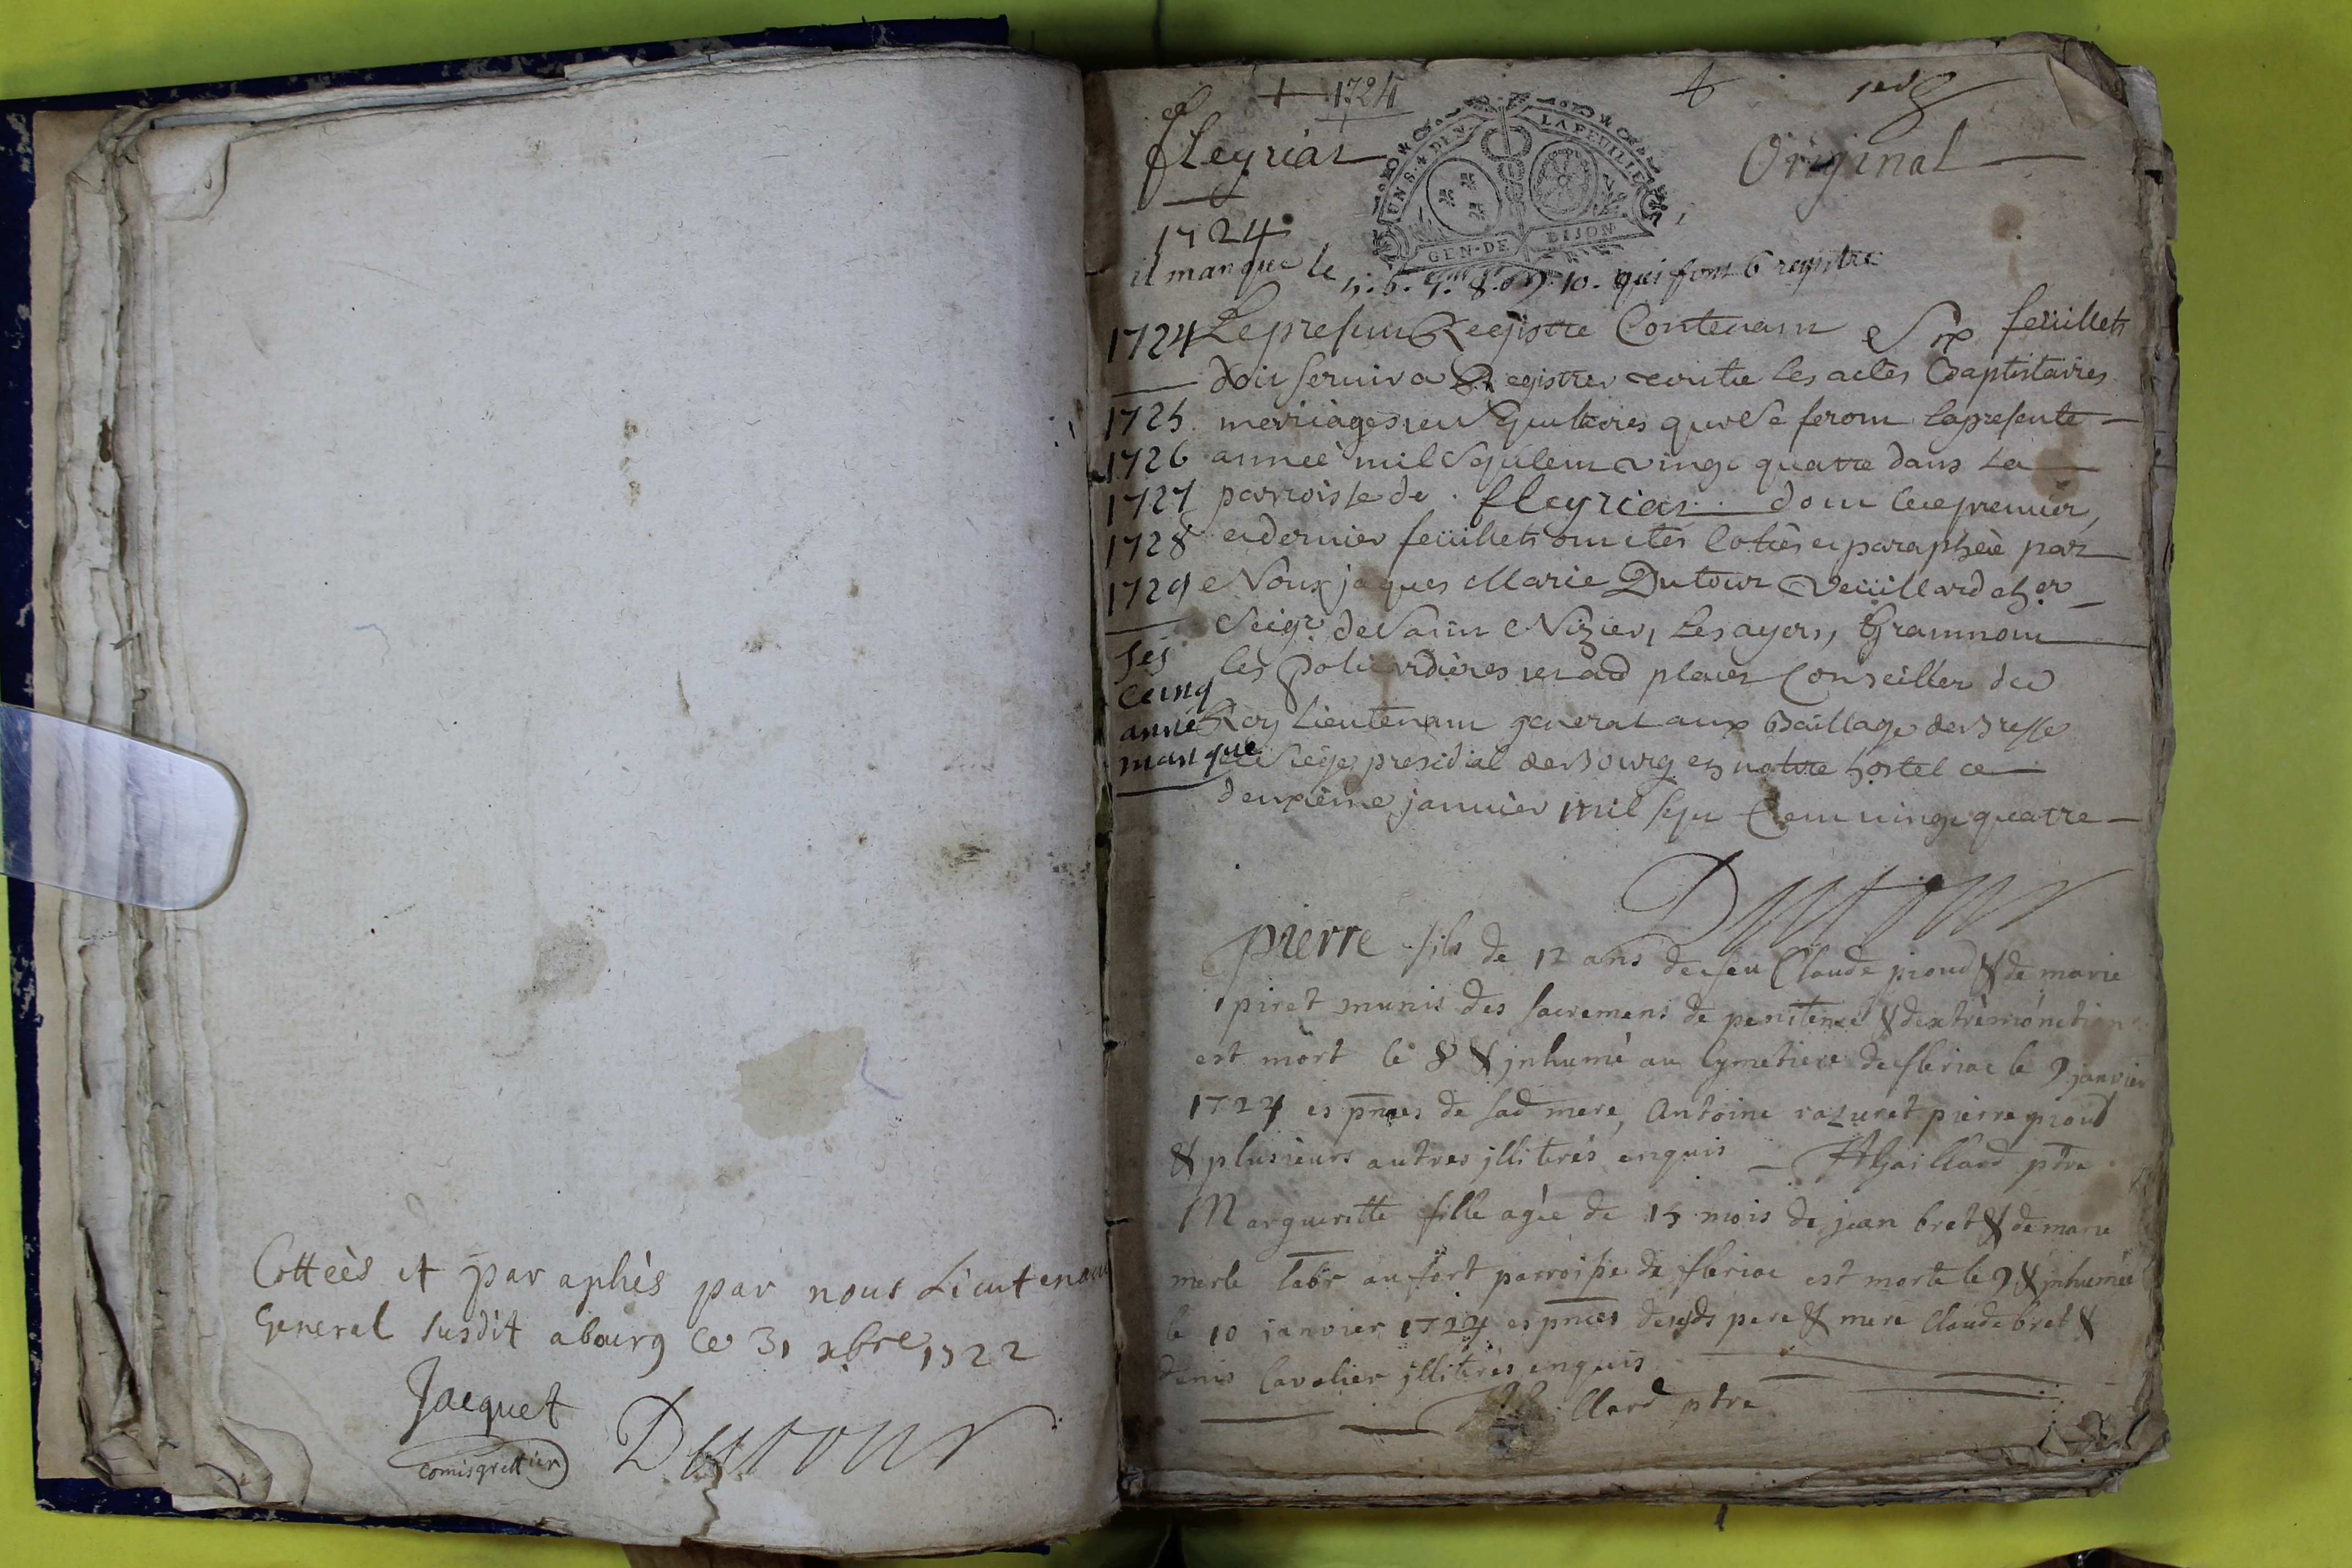 Cottéès et paraphès par nous Lieutenant
General susdit abourg ce 31 xbre 1722
Jacquet
comisgreffier
Dutour
+ 1724
fleyriat
Original
UN S. 4 DEN. LA FEUILLE
GEN. DE DIJON
1724
il manque le 5. 6. 7. 8. 9. 10. qui font 6 registre
1724
1725
1726
1727
1728
1729
ses
cinq
anné
manque
Le present Registre Contenant Six feüillets
doit servir a Registrer les actes Baptistaires
mariages et Sepultures qui se feront la presente
anneè mil Sept cent vingt quatre dans La
parroisse de fleyriat dont le premier,
et dernier feüillets ont etés Cottés et paraphéé par
Nous jaques Marie Dutour Veüillard cher
Seigr. de Saint Nizier, Les ayers, Grammont
les et autres places Conseiller du
Roy Lieutenant general aux Baillage de Bresse
et Siege presidial de Bourg en notre hostel ce
deuxième janvier mil sept Cent vingt quatre
Dutour
pierre fils de 12 ans de feu Claude pioud & de marie
piret munis des sacremens de penitence & dextrémónction
est mort le 8 & jnhumé au Cymetiere de fleriac le 9 janvier
1724 es pnces de sad mere, Antoine razuret pierre pioud
& plusieurs autres jlliterés enquis Gaillard ptre
Margueritte fille agèe de 15 mois de jean bret & de marie
merle labr au fort parroisse de fleriac est morte le 9 & jnhumée
le 10 janvier 1724 es pnces desds pere & mere Claude bret &
denis Cavalier jlliterès enquis
Gaillard ptre